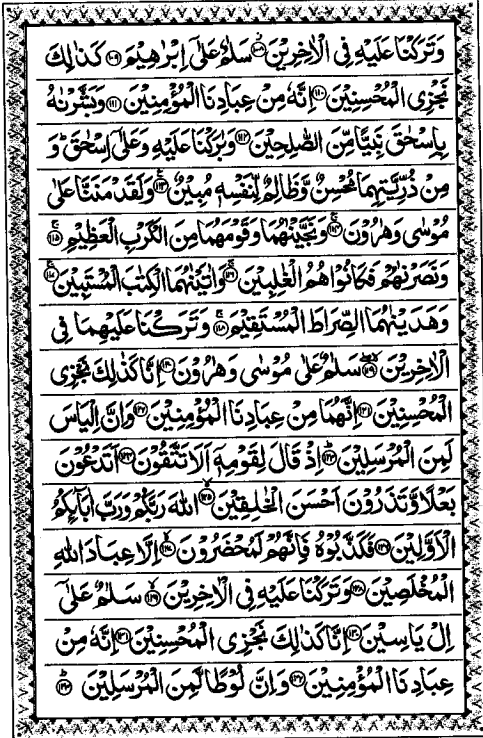 وَتَرَكْنَا عَلَيْهِ فِى الْاٰخِرِيْنَ ۝۱۰۸ سَلٰمٌ عَلٰٓى اِبْرٰهِيْمَ ۝۱۰۹ كَذٰلِكَ
نَجْزِى الْمُحْسِنِيْنَ ۝۱۱۰ اِنَّهٗ مِنْ عِبَادِنَا الْمُؤْمِنِيْنَ ۝۱۱۱ وَبَشَّرْنٰهُ
بِاِسْحٰقَ نَبِيًّا مِّنَ الصّٰلِحِيْنَ ۝۱۱۲ وَبٰرَكْنَا عَلَيْهِ وَعَلٰٓى اِسْحٰقَ ؕ وَ
مِنْ ذُرِّيَّتِهِمَا مُحْسِنٌ وَّظَالِمٌ لِّنَفْسِهٖ مُبِيْنٌ ۝۱۱۳ وَلَقَدْ مَنَنَّا عَلٰى
مُوْسٰى وَهٰرُوْنَ ۝۱۱۴ وَنَجَّيْنٰهُمَا وَقَوْمَهُمَا مِنَ الْكَرْبِ الْعَظِيْمِ ۝۱۱۵
وَنَصَرْنٰهُمْ فَكَانُوْا هُمُ الْغٰلِبِيْنَ ۝۱۱۶ وَاٰتَيْنٰهُمَا الْكِتٰبَ الْمُسْتَبِيْنَ ۝۱۱۷
وَهَدَيْنٰهُمَا الصِّرَاطَ الْمُسْتَقِيْمَ ۝۱۱۸ وَتَرَكْنَا عَلَيْهِمَا فِى
الْاٰخِرِيْنَ ۝۱۱۹ سَلٰمٌ عَلٰى مُوْسٰى وَهٰرُوْنَ ۝۱۲۰ اِنَّا كَذٰلِكَ نَجْزِى
الْمُحْسِنِيْنَ ۝۱۲۱ اِنَّهُمَا مِنْ عِبَادِنَا الْمُؤْمِنِيْنَ ۝۱۲۲ وَاِنَّ اِلْيَاسَ
لَمِنَ الْمُرْسَلِيْنَ ۝۱۲۳ اِذْ قَالَ لِقَوْمِهٖٓ اَلَا تَتَّقُوْنَ ۝۱۲۴ اَتَدْعُوْنَ
بَعْلًا وَّتَذَرُوْنَ اَحْسَنَ الْخٰلِقِيْنَ ۝۱۲۵ اللّٰهَ رَبَّكُمْ وَرَبَّ اٰبَآئِكُمُ
الْاَوَّلِيْنَ ۝۱۲۶ فَكَذَّبُوْهُ فَاِنَّهُمْ لَمُحْضَرُوْنَ ۝۱۲۷ اِلَّا عِبَادَ اللّٰهِ
الْمُخْلَصِيْنَ ۝۱۲۸ وَتَرَكْنَا عَلَيْهِ فِى الْاٰخِرِيْنَ ۝۱۲۹ سَلٰمٌ عَلٰٓى
اِلْ يَاسِيْنَ ۝۱۳۰ اِنَّا كَذٰلِكَ نَجْزِى الْمُحْسِنِيْنَ ۝۱۳۱ اِنَّهٗ مِنْ
عِبَادِنَا الْمُؤْمِنِيْنَ ۝۱۳۲ وَاِنَّ لُوْطًا لَّمِنَ الْمُرْسَلِيْنَ ۝۱۳۳